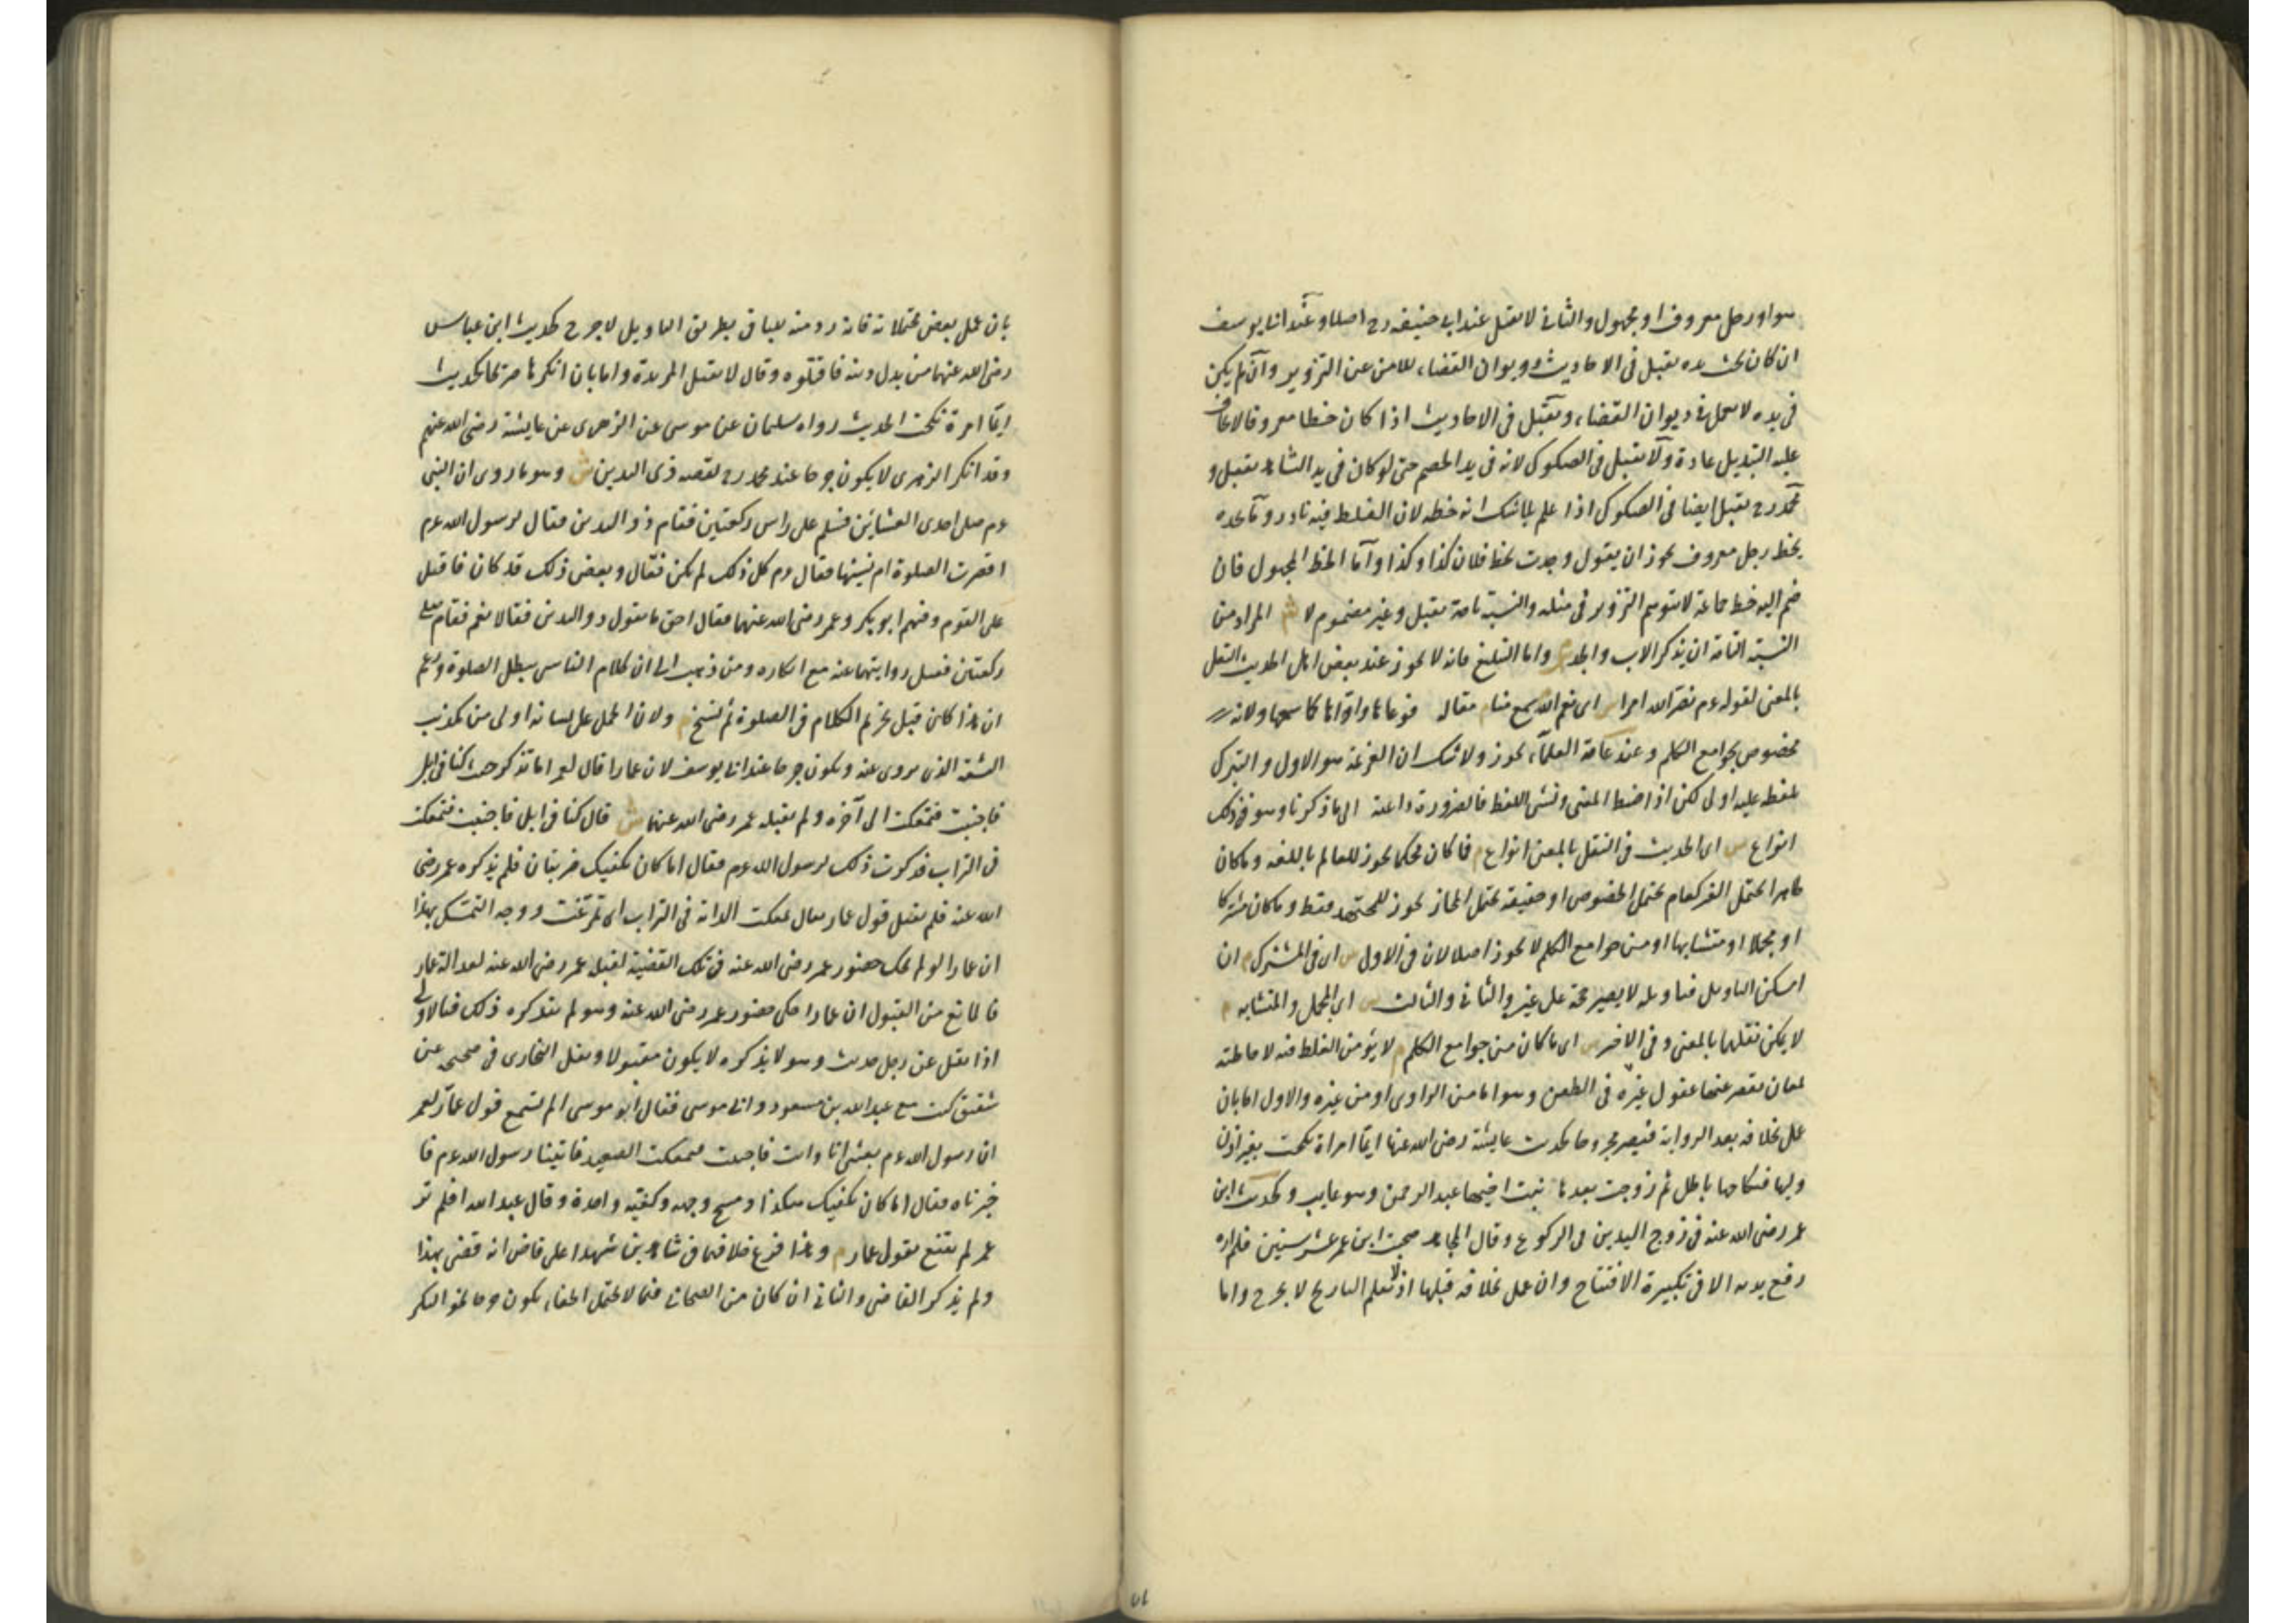 سواء او رجل معروف او مجهول والثانى لا يقبل عند ابى حنيفه رح اصلا وعند ابى يوسف
ان كان تحت يده يقبل فى الاحاديث وديوان القضاء للامن عن التزوير وان لم يكن
فى يده لا يعمل فى ديوان القضاء ويقبل فى الاحاديث اذا كان خطا معروفا لا يخاف
عليه التبديل عادة ولا يقبل فى الصكوك لانه فى يد الخصم حتى لو كان فى يد الشاهد يقبل و
محمد رح يقبل ايضا فى الصكوك اذا علم بلا شك انه خطه لان الغلط فيه نادر وما يجده
بخط رجل معروف يجوز ان يقول وجدت بخط فلان كذا وكذا واما الخط المجهول فان
ضم اليه خط جماعة لا يتوهم التزوير فى مثله والنسبة تامة يقبل وغير مضموم لا ش المراد من
النسبة التامة ان يذكر الاب والجد م واما التبليغ فانه لا يجوز عند بعض اهل الحديث النقل
بالمعنى لقوله عم نضر الله امرا س اى نعم الله سمع منا م مقاله فوعاها واداها كما سمعها ولانه
مخصوص بجوامع الكلم وعند عامة العلماء يجوز ولا شك ان العزيمة هو الاول والتبرك
بلفظه عليه اولى لكن اذا ضبط المعنى ونسى اللفظ فالضرورة داعية الى ما ذكرنا وهو فى ذلك
انواع س اى الحديث فى النقل بالمعنى انواع م فما كان محكما يجوز للعالم باللغه وما كان
ظاهرا يحتمل الغير كعام يحتمل الخصوص او حقيقة يحتمل المجاز يجوز للمجتهد فقط وما كان مشتركا
او مجملا او متشابها او من جوامع الكلم لا يجوز اصلا لان فى الاول س اى فى المشترك م ان
امكن التاويل فتاويله لا يصير حجة على غيره والثانى والثالث س اى المجمل والمتشابه م
لا يمكن نقلها بالمعنى وفى الاخير س اى ما كان من جوامع الكلم م لا يؤمن الغلط فيه لاحاطته
لمعان يقصر عنها عقول غيره فى الطعن وهو اما من الراوى او من غيره والاول اما بان
عمل بخلافه بعد الرواية فيصير مجروحا كحديث عايشة رضى الله عنها ايما امراة نكحت بغير اذن
وليها فنكاحها باطل ثم زوجت بعدها بنت اخيها عبد الرحمن وهو غايب وكحديث ابن
عمر رضى الله عنه فى رفع اليدين فى الركوع وقال المجاهد صحبت ابن عمر عشر سنين فلم اره
رفع يديه الا فى تكبيرة الافتتاح وان عمل بخلافه قبلها او لا تعلم التاريخ لا يجرح واما
بان عمل ببعض محتملاته فانه رد منه للباقى بطريق التاويل لا جرح كحديث ابن عباس
رضى الله عنهما من بدل دينه فاقتلوه وقال لا يقتل المرتدة واما بان انكرها صريحا كحديث
ايما امرة نكحت الحديث رواه سليمان عن موسى عن الزهرى عن عايشة رضى الله عنهم
وقد انكر الزهرى لا يكون جرحا عند محمد رح لقصه ذى اليدين ش وهو ما روى ان النبى
عم صلى احدى العشائين فسلم على راس ركعتين فقام ذو اليدين فقال لرسول الله عم
اقصرت الصلوة ام نسيتها فقال عم كل ذلك لم يكن فقال وبعض ذلك قد كان فاقبل
على القوم وفيهم ابو بكر وعمر رضى الله عنهما فقال احق ما يقول ذو اليدين فقالا نعم فقام فصلى
ركعتين فقبل روايتهما عنه مع انكاره ومن ذهب الى ان كلام الناسى يبطل الصلوة وزعم
ان هذا كان قبل تحريم الكلام فى الصلوة ثم نسخ م ولان الحمل على نسيانه اولى من تكذيب
الثقة الذى يروى عنه ويكون جرحا عند ابى يوسف لان عمارا قال لعمر اما تذكر حيث كنا فى ابل
فاجنبت فتمعكت الى آخره ولم يقبله عمر رضى الله عنهما ش قال كنا فى ابل فاجنبت فتمعكت
فى التراب فذكرت ذلك لرسول الله عم فقال اما كان يكفيك ضربتان فلم يذكره عمر رضى
الله عنه فلم يقبل قول عمار يقال تمعكت الدابة فى التراب اى تمرغت ووجه التمسك بهذا
ان عمارا لو لم يحك حضور عمر رضى الله عنه فى تلك القضية لقبله عمر رضى الله عنه لعدالة عمار
فالمانع من القبول ان عمارا حكى حضور عمر رضى الله عنه وهو لم يتذكره ذلك فبالاولى
اذا نقل عن رجل حديث وهو لا يذكره لا يكون مقبولا ونقل البخارى فى صحيحه عن
شقيق كنت مع عبد الله بن مسعود وابى موسى فقال ابو موسى الم تسمع قول عمار لعمر
ان رسول الله عم بعثنى انا وانت فاجنبت فتمعكت الصعيد فاتينا رسول الله عم فا
خبرناه فقال اما كان يكفيك هكذا ومسح وجهه وكفيه واحدة وقال عبد الله افلم تر
عمر لم يقنع بقول عمار م وهذا فرع خلافهما فى شاهدين شهدا على قاض انه قضى بهذا
ولم يذكر القاضى والثانى ان كان من الصحابى فيما لا يحتمل الخفاء يكون جرحا نحو البكر